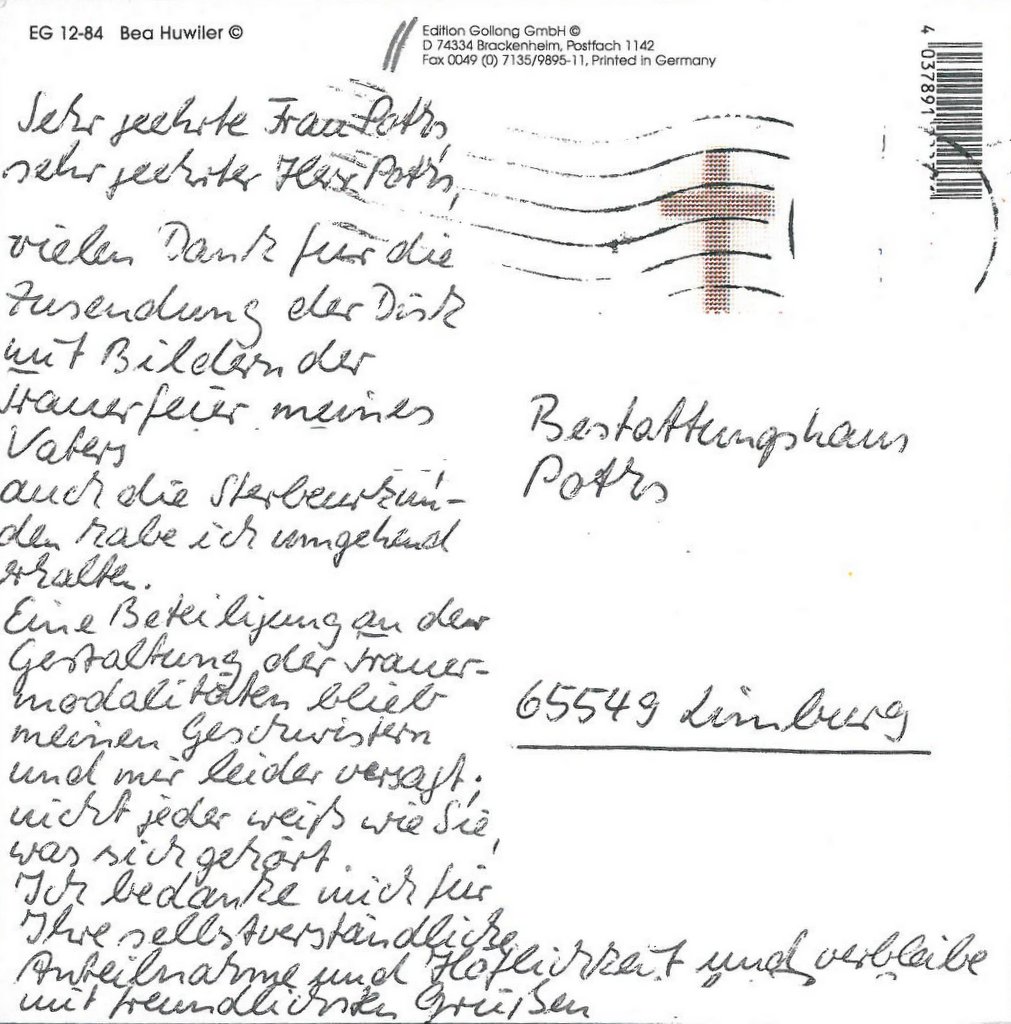 EG 12-84 Bea Huwiler ©
Edition Gollong GmbH ©
D 74334 Brackenheim, Postfach 1142
Fax 0049 (0) 7135/9895-11, Printed in Germany
4 037891
Sehr geehrte Frau Poths,
sehr geehrter Herr Poths,
vielen Dank für die
Zusendung der Disk
mit Bildern der
Trauerfeier meines
Vaters
auch die Sterbeurkun-
den habe ich umgehend
erhalten.
Eine Beteiligung an der
Gestaltung der Trauer-
modalitäten blieb
meinen Geschwistern
und mir leider versagt;
nicht jeder weiß wie Sie,
was sich gehört.
Ich bedanke mich für
Ihre selbstverständliche
Anteilnahme und Höflichkeit und verbleibe
mit freundlichen Grüßen
Bestattungshaus
Poths
65549 Limburg